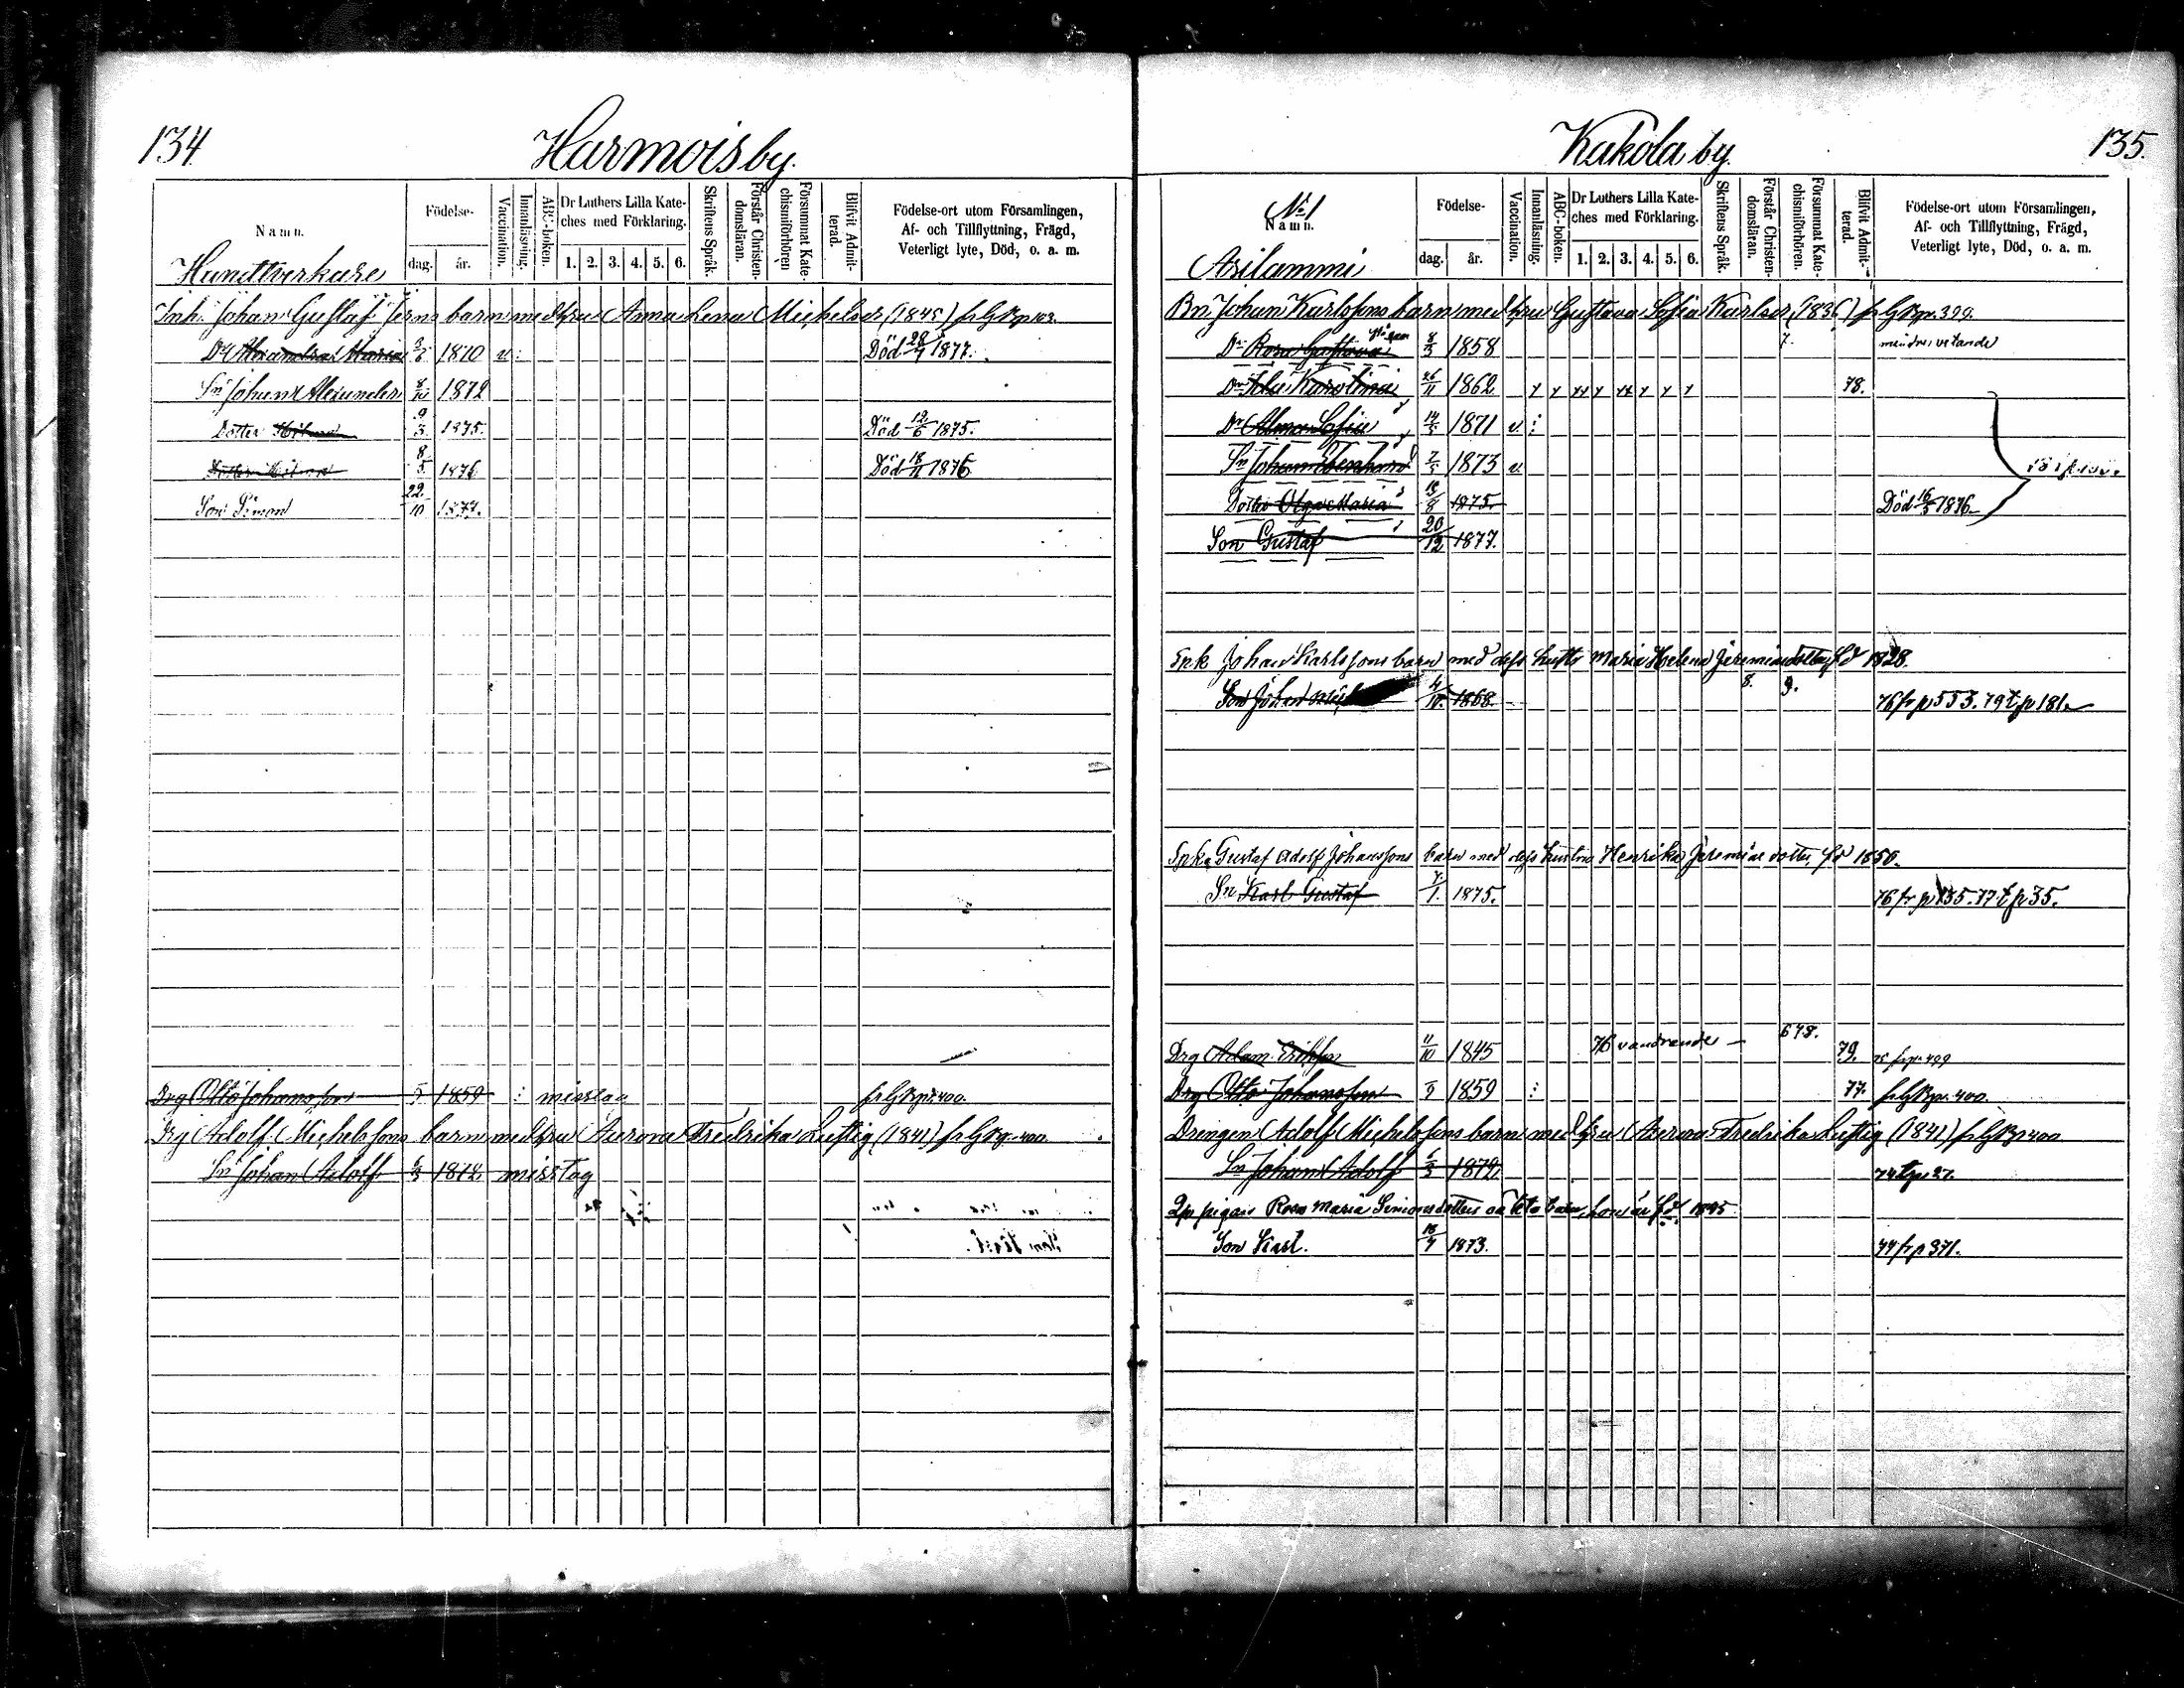 134 Harmois by.
Namn.
Födelse-
dag. år.
Vaccination.
Innanläsning.
ABC-boken.
Dr Luthers Lilla Kate-
ches med Förklaring.
1. 2. 3. 4. 5. 6.
Skriftens Språk.
Förstår Christen-
domsläran.
Försummat Kate-
chismiförhören
Blifvit Admit-
terad.
Födelse-ort utom Församlingen,
Af- och Tillflyttning, Frägd,
Veterligt lyte, Död, o. a. m.
Handtverkare
Inh. Johan Gustaf barn med hru Anna Lena Michelsdr (1845)
Dr Alexandra Maria 1870 v: Död 28/4 1877.
Sn Johan Alexander 1872
Dotter 9/3 1875. Död 12/6 1875.
Dotter 8/5 1876 Död 18/11 1876
Son Simon 22/10 1877.
Drg Otto Johansson 1859 : misstag fr GKp 400.
Drg Adolf Michelssons barn med hru Aurora Fredrika Lustig (1841) fr GKp 400
Sn Johan Adolf 1872 misstag
Kakola by. 135.
No 1
Namn.
Födelse-
dag. år.
Vaccination.
Innanläsning.
ABC-boken.
Dr Luthers Lilla Kate-
ches med Förklaring.
1. 2. 3. 4. 5. 6.
Skriftens Språk.
Förstår Christen-
domsläran.
Försummat Kate-
chismiförhören.
Blifvit Admit-
terad.
Födelse-ort utom Församlingen,
Af- och Tillflyttning, Frägd,
Veterligt lyte, Död, o. a. m.
Asilammi
Bn Johan Karlssons barn med hru Gustava Sofia Karlsdr (1836) fr GKp. 399.
Dr Rosa Gustava 1858 7.
Dr Ida Karolina 26/11 1862 78.
Dr Alma Sofia 14/5 1871 v :
Sn Johan 1873 v
Dotter Olga Maria 1875. Död 16/5 1876
Son Gustaf 20/12 1877.
Spk Johan Karlssons barn med dess hustr Maria Helena Jeremiasdotter fd 1828.
Son Johan 1868. 8. 9. 76 fr p 553. 79 t p 181.
Spk. Gustaf Adolf Johanssons barn med dess hustru Henrika Jeremiae dotter, fd 1850.
Sn Karl Gustaf 7/1. 1875. 76 fr p 135. 77 t p 35.
Drg Adam Eriksson 11/10 1845 76 vandrande – 678. 79.
Drg Otto Johansson 1859 : 77. fr GKp. 400.
Drengen Adolf Michelssons barn med hru Aurora Fredrika Lustig (1841) fr GKp 400
Sn Johan Adolf 1872. 74 t p 27.
Rosa Maria Simonsdotters oäkta barn, hon är fd 1845
Son Karl. 1873. 77 fr p 371.